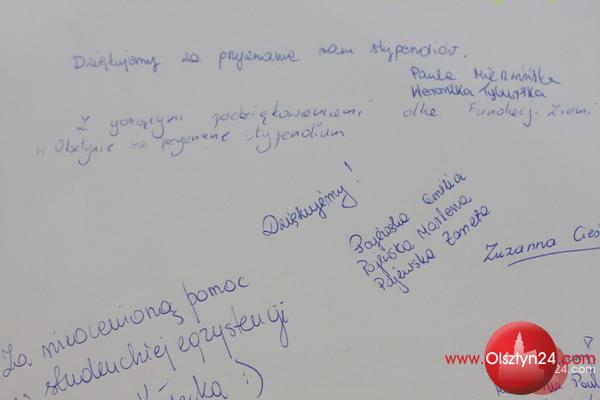 Dziękujemy za przyznanie nam stypendiów.
Paula
Weronika Tyburska
Z gorącymi podziękowaniami dla Fundacji Ziemi
w Olsztynie za przyznane stypendium
Dziękujemy!
Emilia
Marlena
Pajewska Żaneta
Zuzanna
Za nieocenioną pomoc
w studenckiej egzystencji
:)
www.Olsztyn24.com
24.com